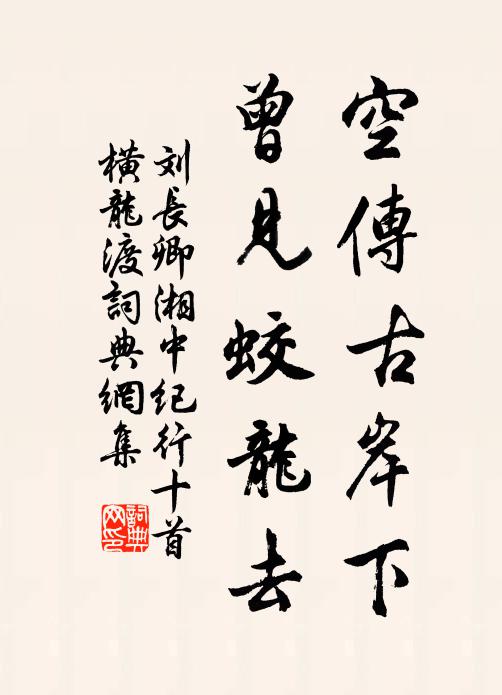 空傳古岸下
曾見蛟龍去
刘長卿湘中纪行十首
橫龍渡詞典網集
詞典网印